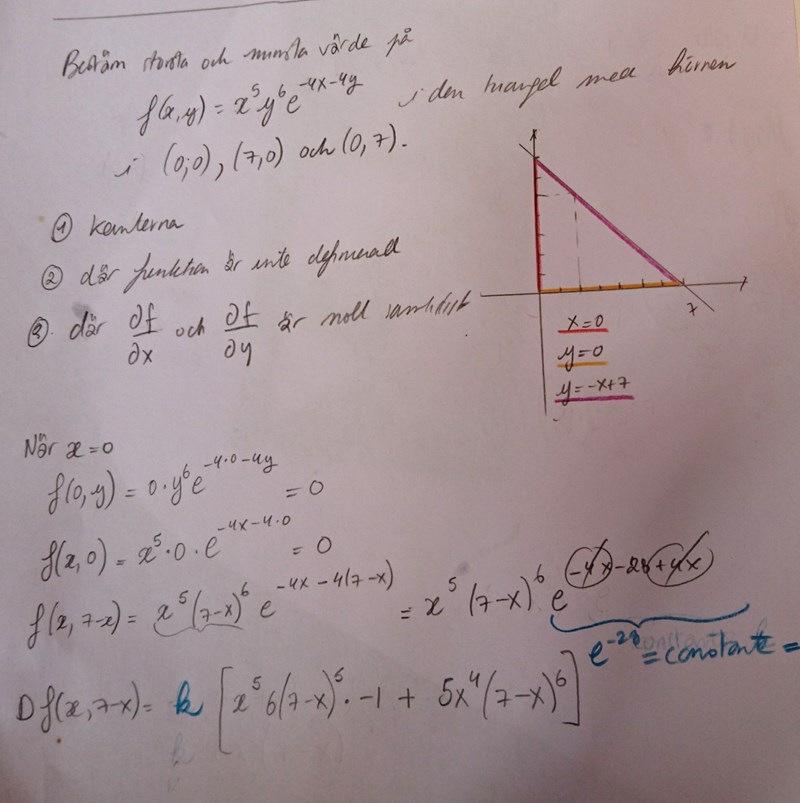 Bestäm största och minsta värde på
f(x,y) = x⁵y⁶e^(-4x-4y) i den triangel med hörnen
i (0,0), (7,0) och (0,7).
① kanterna
② där funktion är inte definierad
③ där ∂f/∂x och ∂f/∂y är noll samtidigt
7
x=0
y=0
y=-x+7
När x=0
f(0,y) = 0·y⁶e^(-4·0-4y) = 0
f(x,0) = x⁵·0·e^(-4x-4·0) = 0
f(x,7-x) = x⁵(7-x)⁶e^(-4x-4(7-x)) = x⁵(7-x)⁶e^(-4x-28+4x)
e^(-28) = constant =
Df(x,7-x) = k[x⁵6(7-x)⁵·-1 + 5x⁴(7-x)⁶]